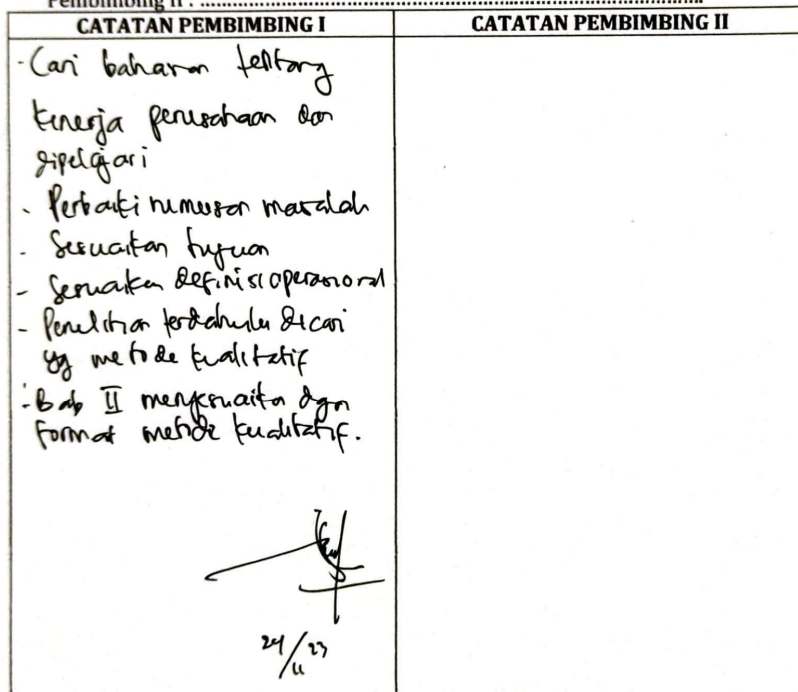 Pembimbing II : ........................................................................
CATATAN PEMBIMBING I
- Cari baharan tentang
kinerja perusahaan dan
dipelajari
- Perbaiki rumusan masalah
- Sesuaikan tujuan
- Sesuaikan definisi operasional
- Penelitian terdahulu dicari
yg metode kualitatif
- Bab II menyesuaikan dgn
format metode kualitatif.
24/11 23
CATATAN PEMBIMBING II